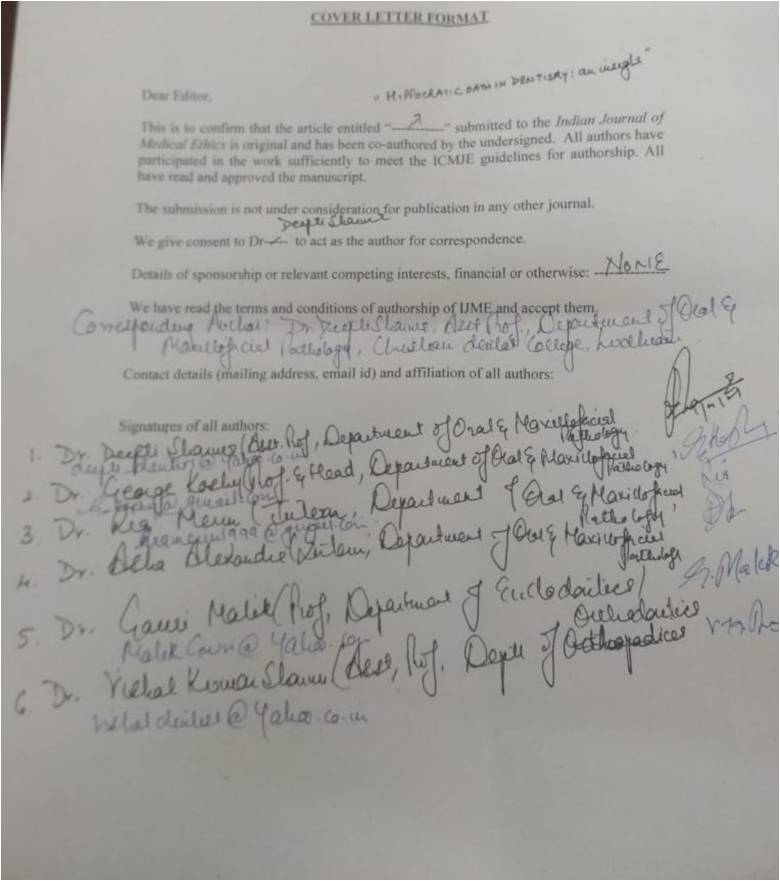 COVER LETTER FORMAT
Dear Editor,
"HIPPOCRATIC OATH IN DENTISRY: an insight"
This is to confirm that the article entitled "---------" submitted to the Indian Journal of
Medical Ethics is original and has been co-authored by the undersigned. All authors have
participated in the work sufficiently to meet the ICMJE guidelines for authorship. All
have read and approved the manuscript.
The submission is not under consideration for publication in any other journal.
Deepti Sharma
We give consent to Dr--- to act as the author for correspondence.
Details of sponsorship or relevant competing interests, financial or otherwise: NONE
We have read the terms and conditions of authorship of IJME and accept them.
Corresponding Author: Dr Deepti Sharma, Asst Prof., Department of Oral &
Maxillofacial Pathology, Christian dental College, Ludhiana.
Contact details (mailing address, email id) and affiliation of all authors:
Signatures of all authors:
1. Dr. Deepti Sharma (Asst. Prof, Department of Oral & Maxillofacial
Pathology
@yahoo.co.in
2. Dr. George Koshy (Prof. & Head, Department of Oral & Maxillofacial
Pathology
@gmail.com
3. Dr. Menn (Intern, Department of Oral & Maxillofacial
Pathology
@gmail.com
4. Dr. (Intern, Department of Oral & Maxillofacial
Pathology
5. Dr. Gauri Malik (Prof, Department of Endodontics)
G. Malik
Orthodontics
6. Dr. Vishal Kumar Sharma (Asso, Prof. Deptt of Orthopadices
@yahoo.co.in